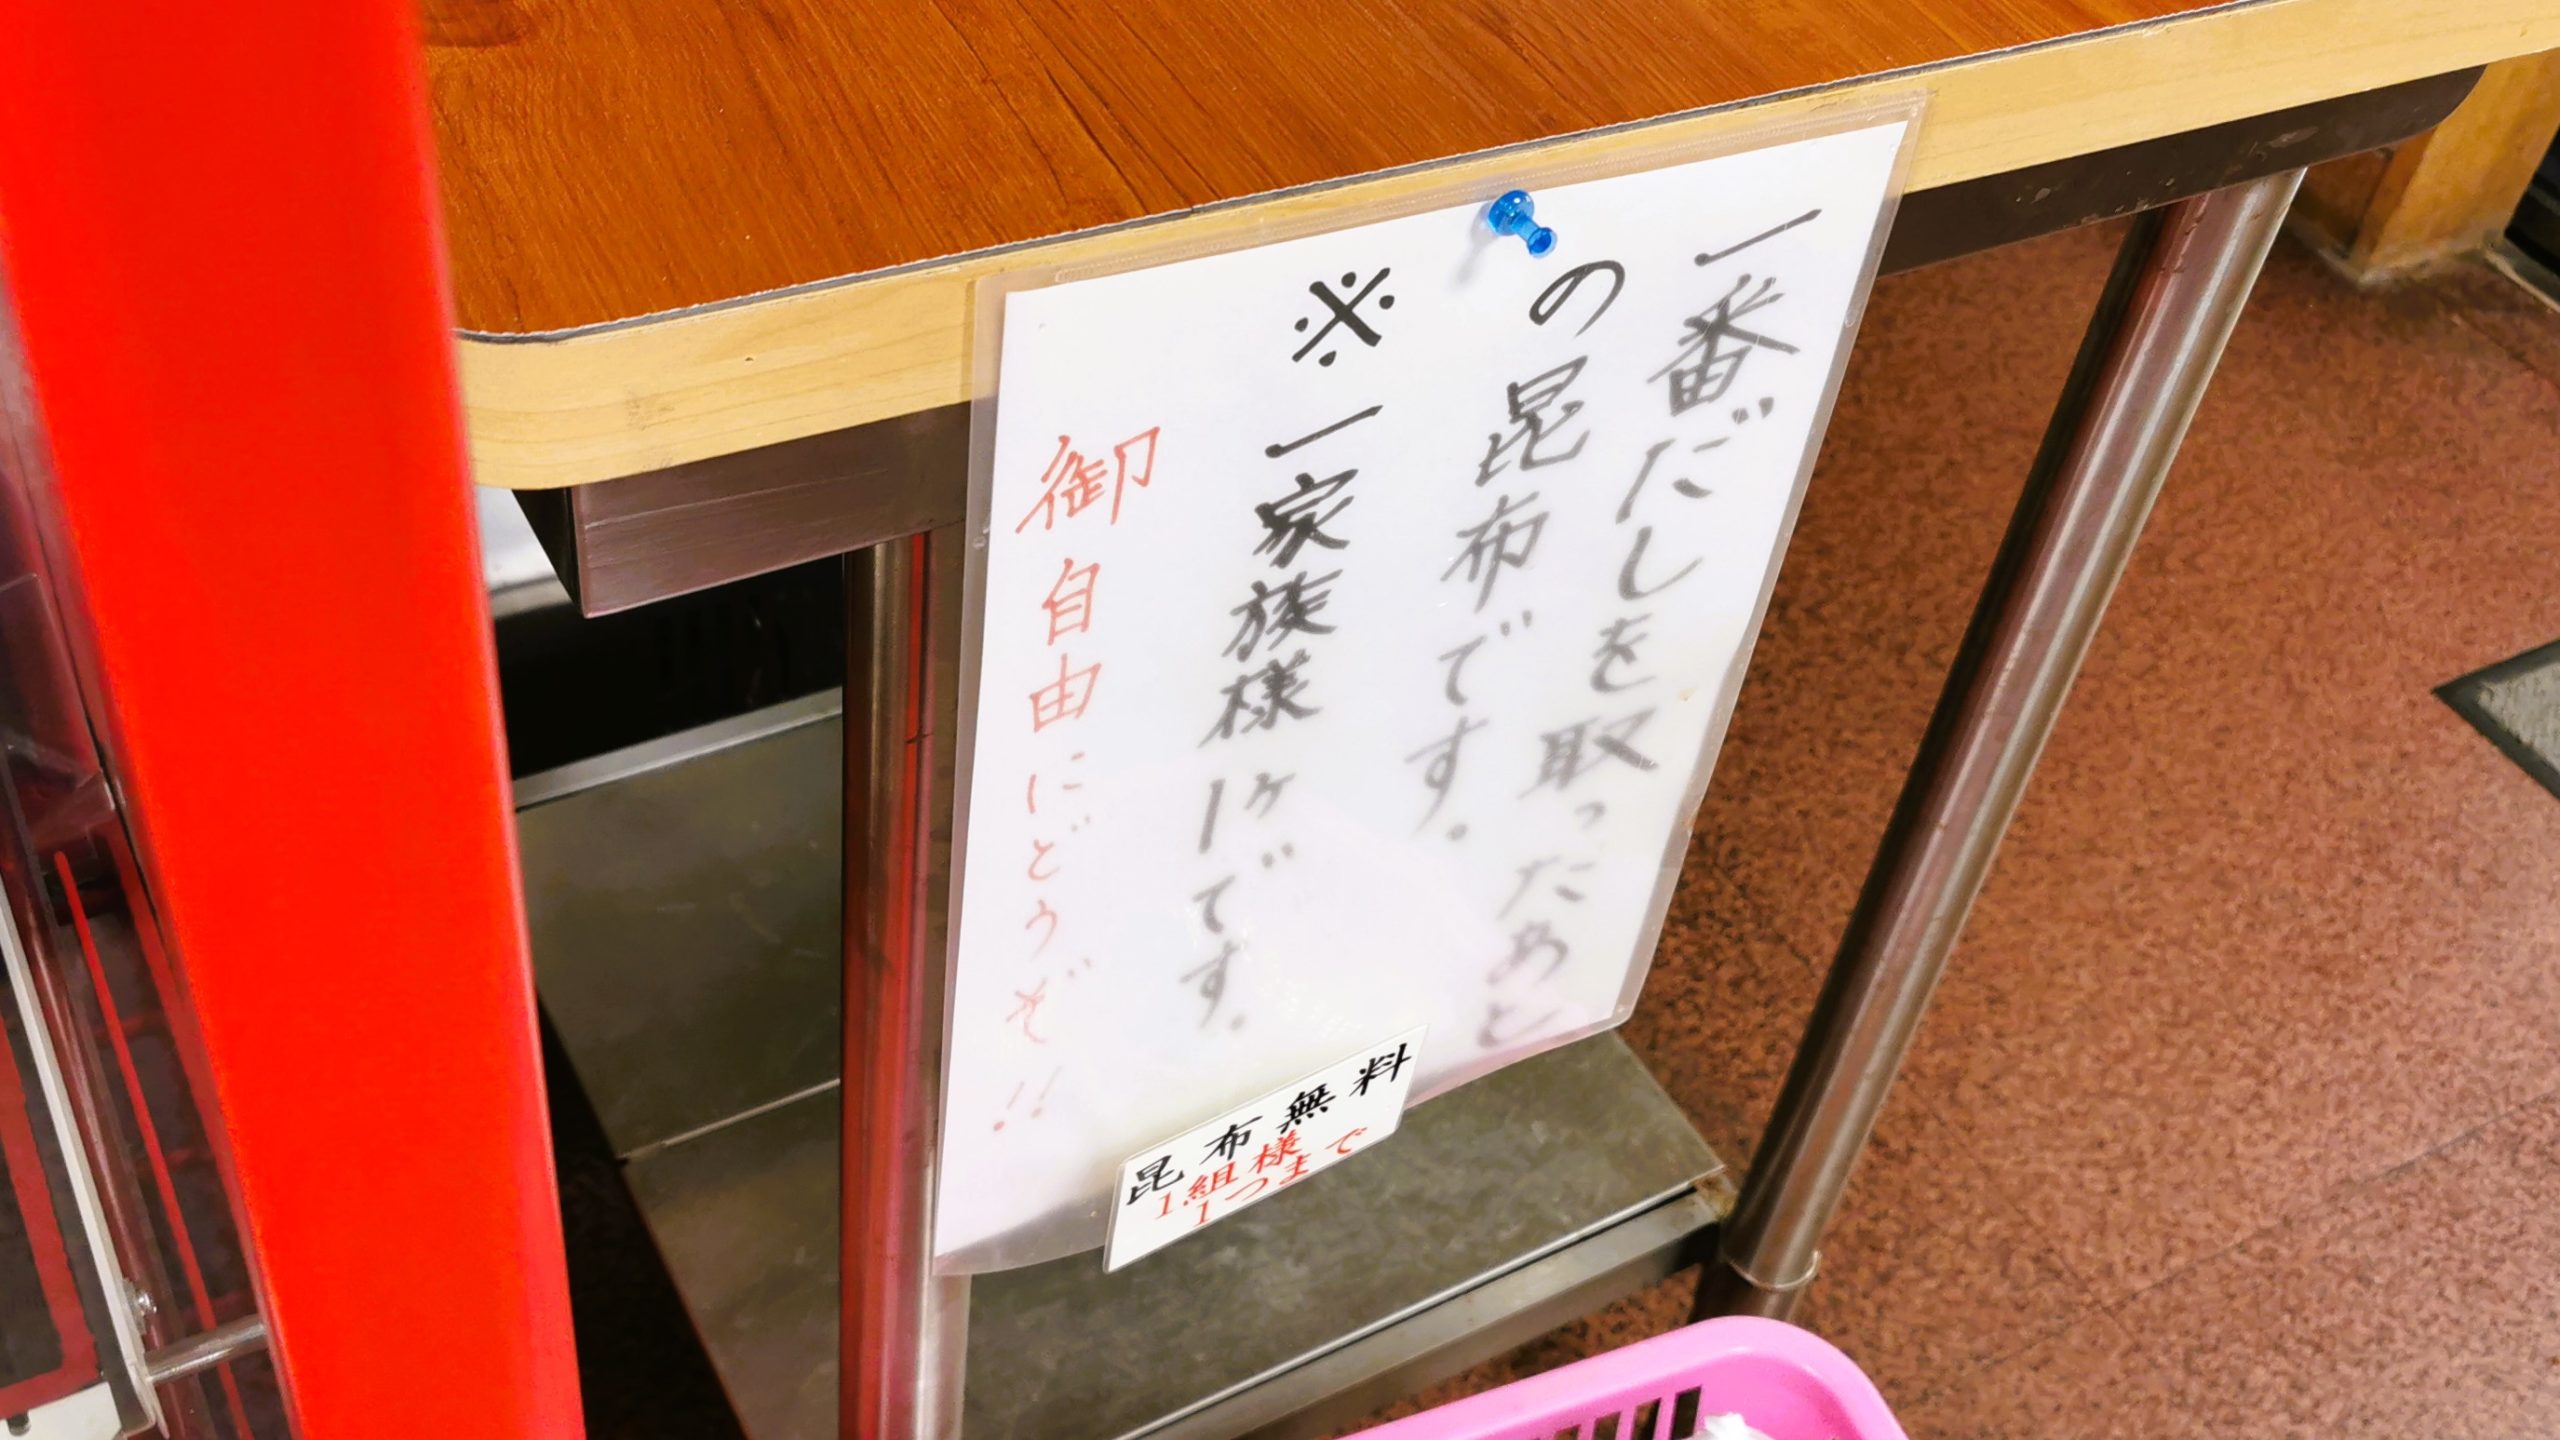 一番だしを取ったあと
の昆布です。
※一家族様1ケです。
御自由にどうぞ!!
昆布無料
1組様
1つまで